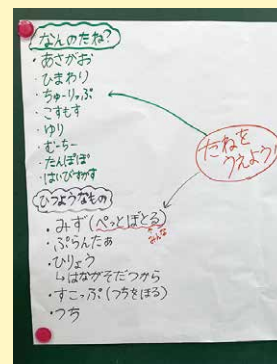 なんのたね?
・あさがお
・ひまわり
・ちゅーりっぷ
・こすもす
・ゆり
・むーちー
・たんぽぽ
・はいびすかす
たねを
うえよう!
ひつようなもの
・みず(ぺっとぼとる)
みんな
・ぷらんたぁ
・ひりょう
↳はながそだつから
・すこっぷ(つちをほる)
・つち